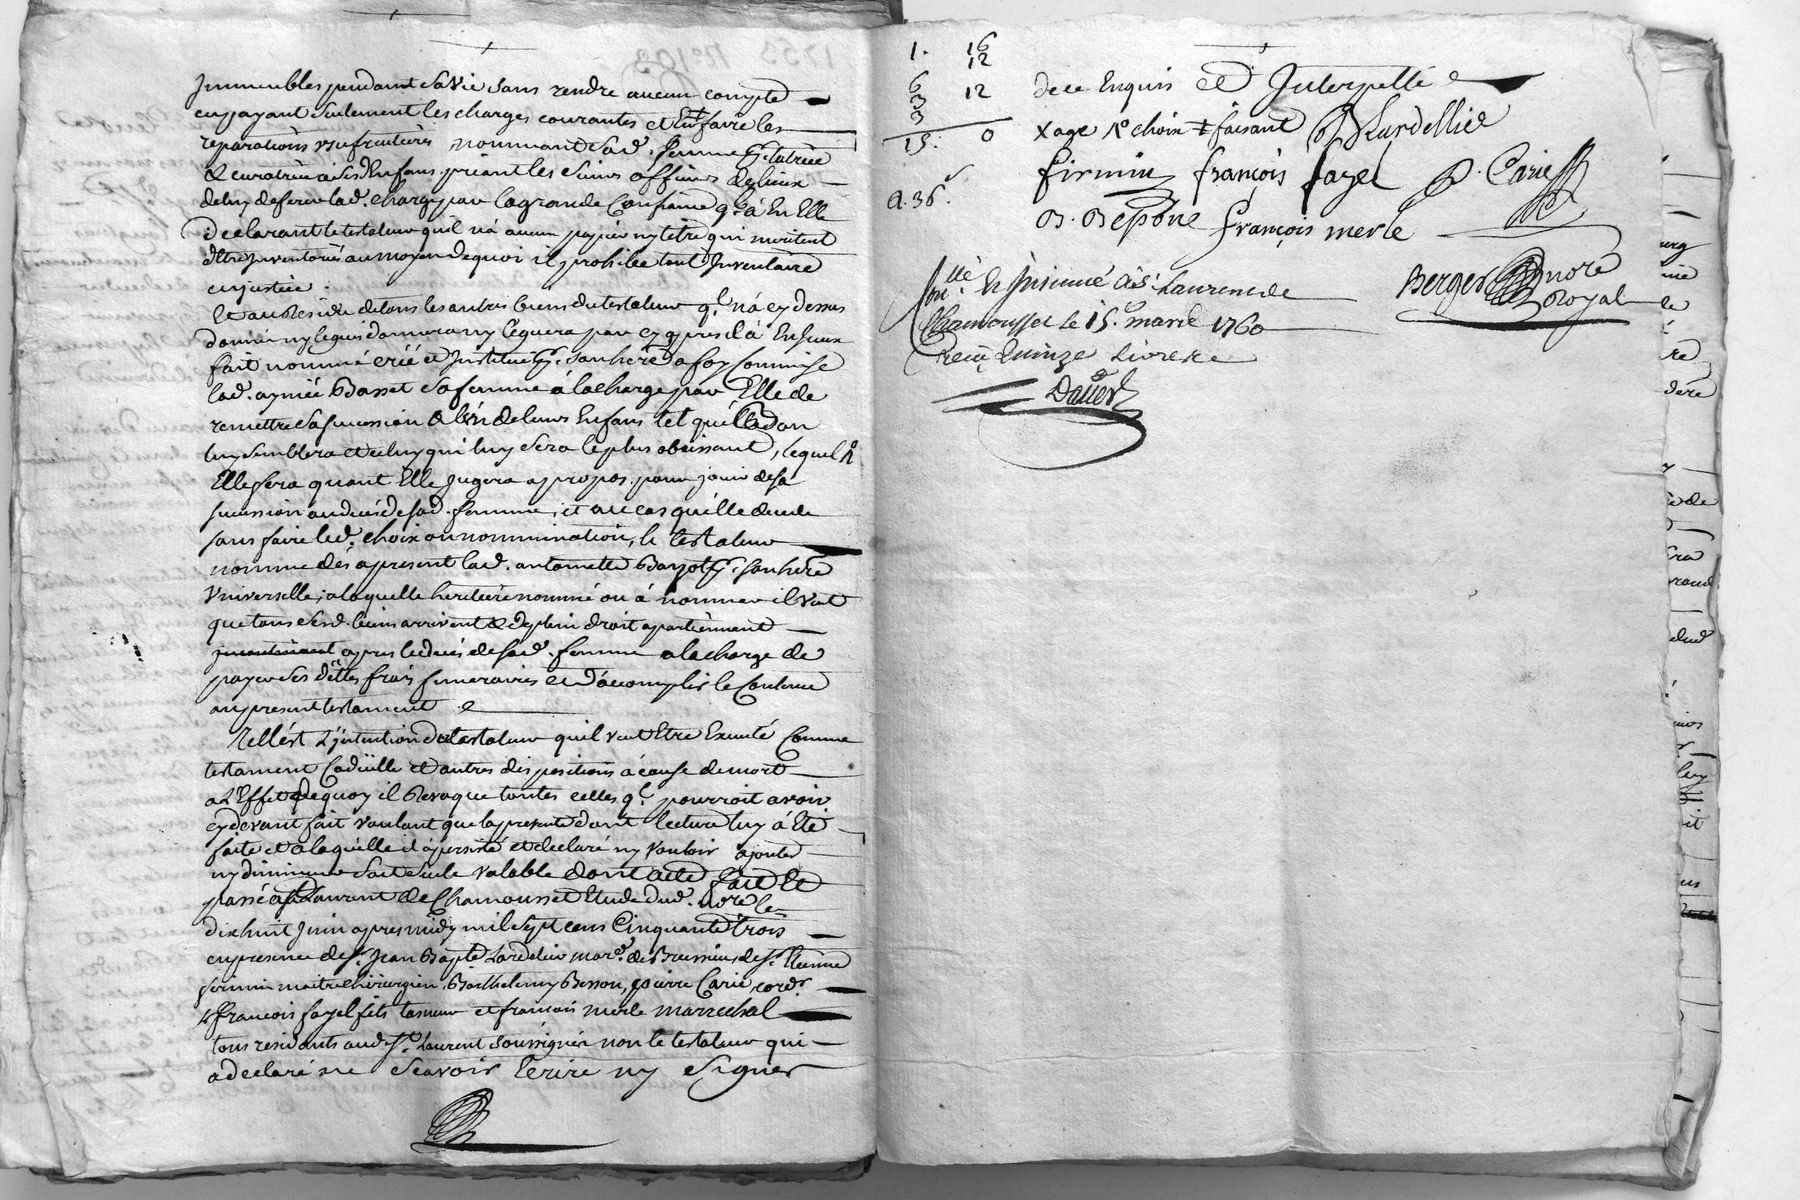 Immeubles pendant sa vie sans rendre aucun compte
en payant seulement les charges courantes et En faire les
reparations usufruitières nommant sad. femme tutrice
& curatrice a ses Enfans priant les siens affins de lieux
de luy deferer lad. charge par la grande Confiance q. a En Elle
declarant le testateur quil n'a aucun papier ny tître qui meritent
d'être Inventoriés au moyen de quoi il prohibe tout Inventaire
en justice.
Et au Reside de tous les autres biens du testateur q. n'a cy dessus
donné ny legué donnera ny leguera par cy apres il a En Iceux
fait nommé créé et Institué son here a foy commise
lad. aymée Basset sa femme à la charge par Elle de
remettre sa sucession a l'un de leurs Enfans tel que
luy semblera et celuy qui luy sera le plus obeissant, lequel
Elle fera quant Elle Jugera apropos pour jouir de sa
sucession au deces de sad. femme, et au cas qu'elle decede
sans faire led. choix ou nommination, le testateur
nomme dès apresent lad. antoinette son here
Universelle, a laquelle heritière nommé ou à nommer il veut
que tous sesd. biens arrivent & de plein droit apartiennent
incontinent apres le decés de sad. femme a la charge de
payer ses dettes frais funeraires et d'acomplir le Contenu
au present testament
Tell'est L'jntention du testateur qu'il veut Etre Executé Comme
testament Codicille et autres dispositions à cause de mort
a L'Effet de quoy il Revoque toutes celles q. pourroit avoir
cy devant fait voulant que la presente dont lecture luy à Eté
faite et a laquelle il a persisté et declaré ny vouloir ajouter
ny diminuer soit seule valable dont acte fait Et
passé a St Laurent de Chamousset Etude dud. nore le
dixhuit Juin apres midy mil sept cens Cinquante trois
en presence de s. Jean Bapte Lardelier mar. de Brussieu, de s. Etienne
firmin maitre chirurgien, Barthelemy Besson, pierre Carié, cord.
françois fayel fils tanneur et françois merle marrechal
tous residants aud. St. Laurent soussignés non le testateur qui
a declaré ne Scavoir Ecrire ny Signer
1. 16
12
6 12
3
3
15. 0
a. 36.
de ce Enquis et Interpellé
x age choix ‡ faisant Lardellier
firmin françois fayel P. Carié
françois merle
Berger nore Royal
Con.lle En Insinué à St. Laurent de
Chamousset le 15. mars 1760
Reçu Quinze Livres